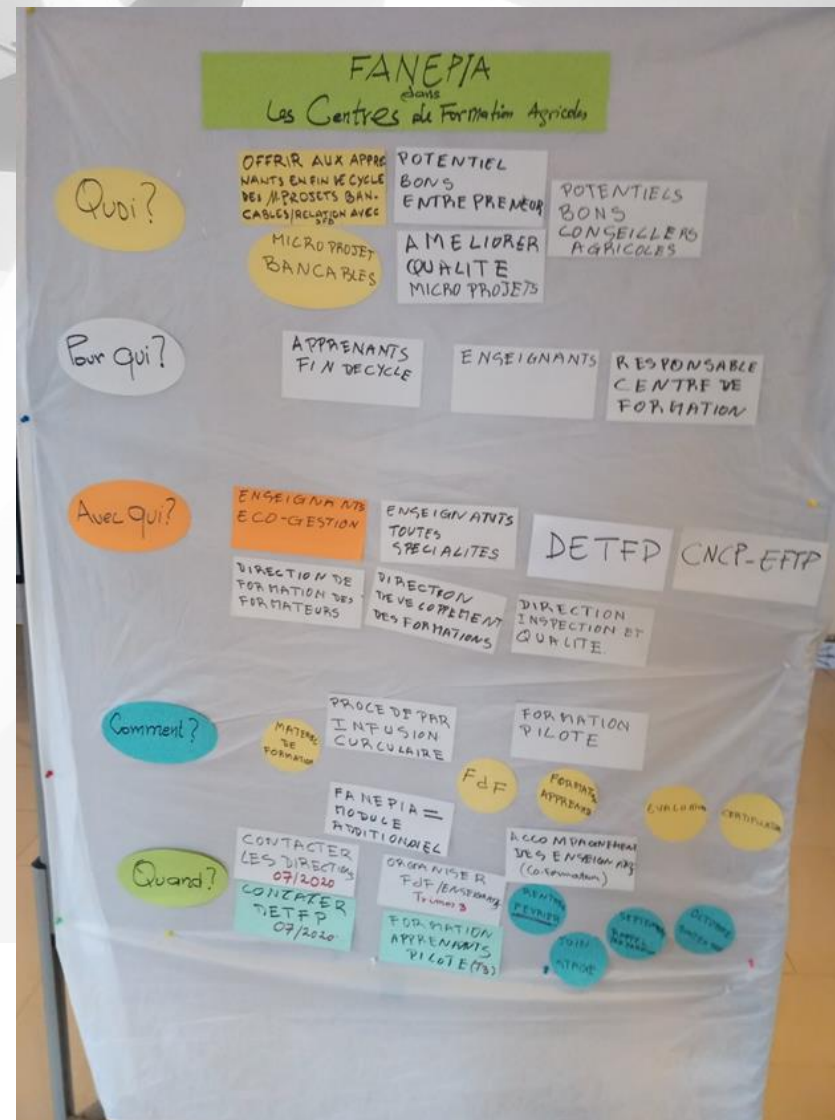 FANEPIA
dans
Les Centres de Formation Agricoles
Quoi?
OFFRIR AUX APPRE
NANTS EN FIN DE CYCLE
DES MPROJETS BAN-
CABLES/RELATION AVEC
SFD
MICRO PROJET
BANCABLES
POTENTIEL
BONS
ENTREPRENEUR
AMELIORER
QUALITE
MICRO PROJETS
POTENTIELS
BONS
CONSEILLERS
AGRICOLES
Pour qui?
APPRENANTS
FIN DE CYCLE
ENSEIGNANTS
RESPONSABLE
CENTRE DE
FORMATION
Avec qui?
ENSEIGNANTS
ECO-GESTION
ENSEIGNATNTS
TOUTES
SPECIALITES
DETFP
CNCP-EFTP
DIRECTION DE
FORMATION DES
FORMATEURS
DIRECTION
DEVELOPPEMENT
DES FORMATIONS
DIRECTION
INSPECTION ET
QUALITE
Comment?
MATERIEL
DE
FORMATION
PROCEDE PAR
INFUSION
CURCULAIRE
FORMATION
PILOTE
FdF
FORMATO
APPRENANT
EVALUATION
CERTIFICATION
FANEPIA =
MODULE
ADDITIONNEL
ACCOMPAGNEMENT
DES ENSEIGNANTS
(Co-formation)
Quand?
CONTACTER
LES DIRECTIONS
07/2020
CONTATER
DETFP
07/2020
ORGANISER
FdF/ENSEIGNANTS
FORMATION
APPRENANTS
PILOTE (T3)
RENTRE
FEVRIER
JUIN
STAGE
SEPTEMBRE
OCTOBRE